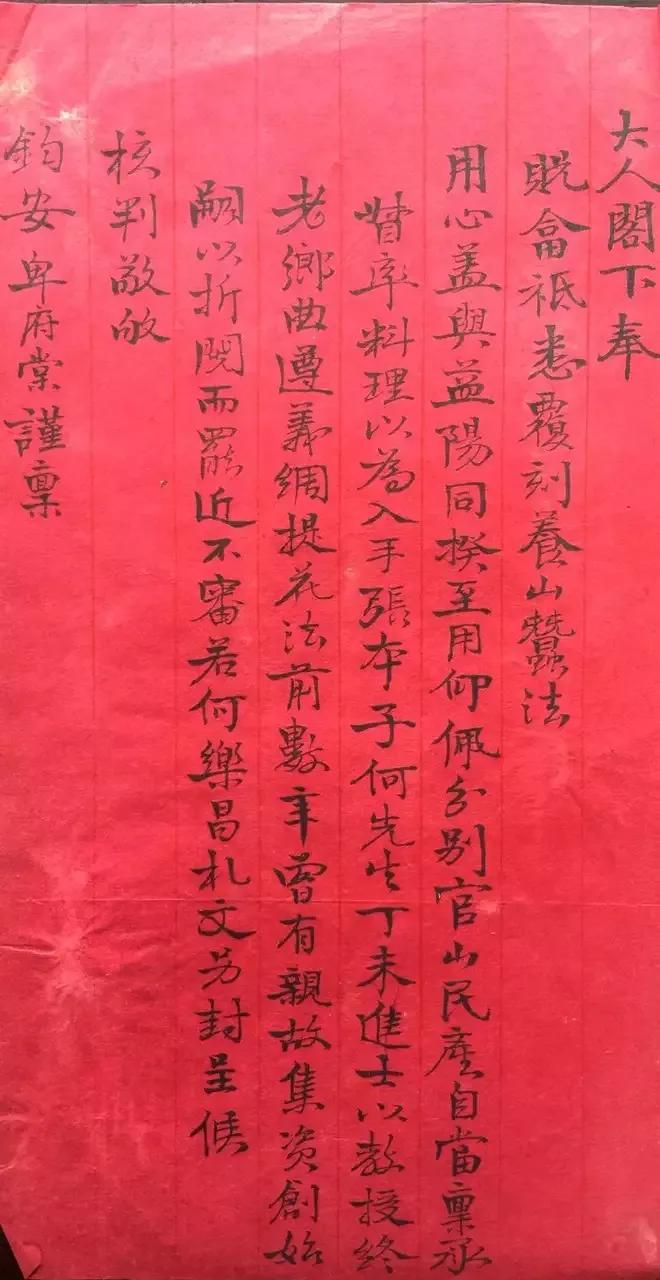 大人閣下奉
貺畲祗悉覆刻養山蠶法
用心蓋與益陽同揆至用仰佩分別官山民產自當稟承
督率料理以為入手張本子何先生丁未進士以教授終
老鄉曲遵義綢提花法前數年曾有親故集资創始
嗣以折閱而罷近不審若何樂昌札文另封呈候
核判敬敂
鈞安卑府棠謹稟